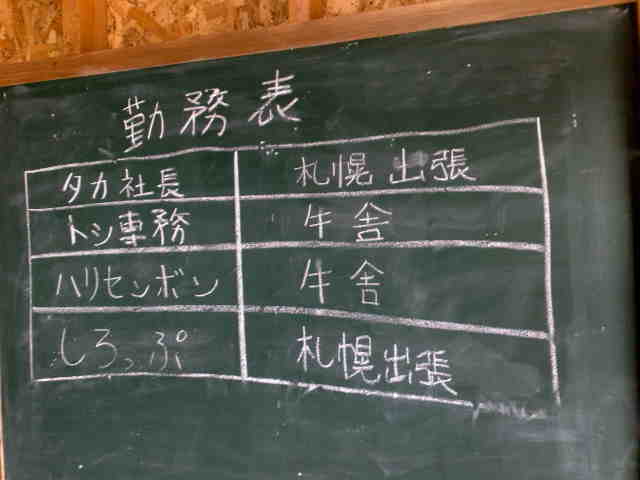 勤務表
タカ社長 札幌出張
トシ専務 牛舎
ハリセンボン 牛舎
しろっぷ 札幌出張